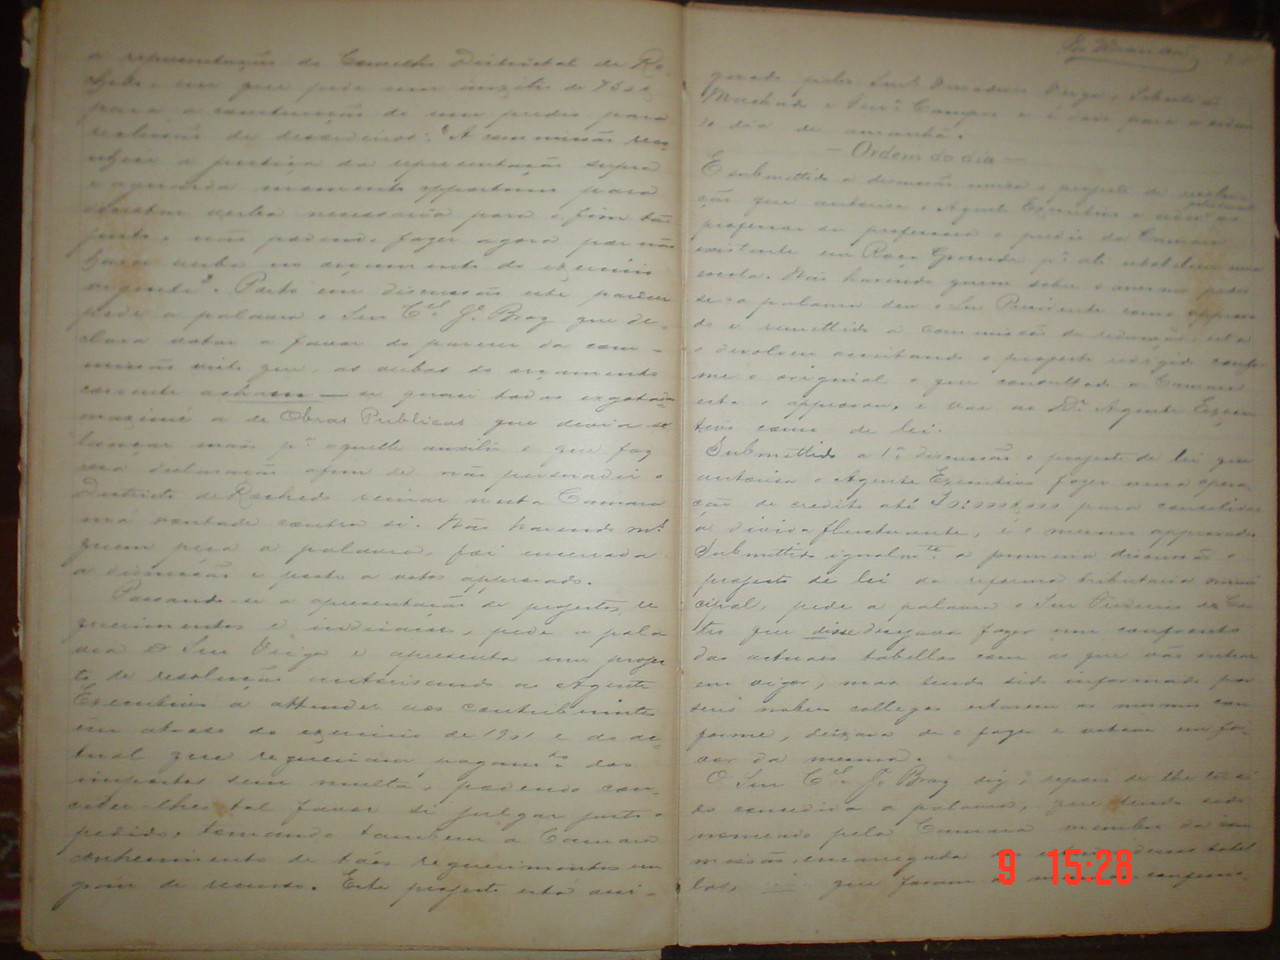 a representação do Conselho Districtal de Ro-
chedo em que pede um auxilio de
para a construcção de um predio para
"A commissão reco-
nhece a justiça da representação supra
e aguarda momento opportuno para
decretar verba necessaria para o fim tão
justo, não podendo fazer agora por não
haver verba no orçamento do exercicio
vigente". Posto em discussão este parecer
pede a palavra o Snr Cel. Je. Braz que de-
clara votar a favor do parecer da com-
missão visto que as verbas do orçamento
corrente acham-se quasi todas exgotadas
maximé a de Obras Publicas que devia se
lançar mão pa. aquelle auxilio e que faz
essa declaração afim de não persuadir o
Districto de Rochedo reinar nesta Camara
má vontade contra si. Não havendo ms.
quem peça a palavra, foi encerrada
a discussão e posto a votos approvado.
Passando-se a apresentação de projectos, re-
querimentos e indicações, pede a pala-
vra o Snr Veiga e apresenta um projec-
to de resolução autorisando ao Agente
Executivo a attender aos contribuintes
em atraso do exercicio de 1901 e do ac-
tual que requeriram pagamto. dos
impostos sem multa, podendo con-
ceder-lhes tal favor si julgar justo o
pedido, tomando tambem a Camara
conhecimento de taes requerimentos em
gráu de recurso. Este projecto está assi-
gnado pelos Snrs. Vereadores Veiga, Sebastião
Machado e Campos e é dado para a ordem
do dia de amanhã.
— Ordem do dia —
É submettido a discussão unica o projecto de resolu-
ção que autorisa o Agente Executivo a
professor ou professora o predio da Camara
existente em Roça Grande pa. ali estabelecer uma
escola. Não havendo quem sobre o mesmo pedis-
se a palavra deu o Snr Presidente como approva-
do e remettido a commissão de redacção, esta
o devolveu acceitando o projecto redigido confor-
me o original o que consultada a Camara
esta o approvou, e vae ao Dr. Agente Execu-
tivo como de lei.
Submettido a 1a. discussão o projecto de lei que
autorisa o Agente Executivo fazer uma opera-
ção de credito até para consolidar
a divida fluctuante, é o mesmo approvado.
Submettido igualmte. a primeira discussão o
projecto de lei da reforma tributaria muni-
cipal, pede a palavra o Snr de Cas-
tro que disse desejava fazer um confronto
das actuaes tabellas com as que vão entrar
em vigor, mas tendo sido informado por
seus nobres collegas estarem as mesmas con-
forme, deixava de o fazer e votava em fa-
vor da mesma.
O Snr Cel. Je. Braz diz, depois de lhe ter si-
do concedida a palavra, que tendo sido
nomeado pela Camara membro da com-
missão encarregada tabel-
las, que foram
9 15:28